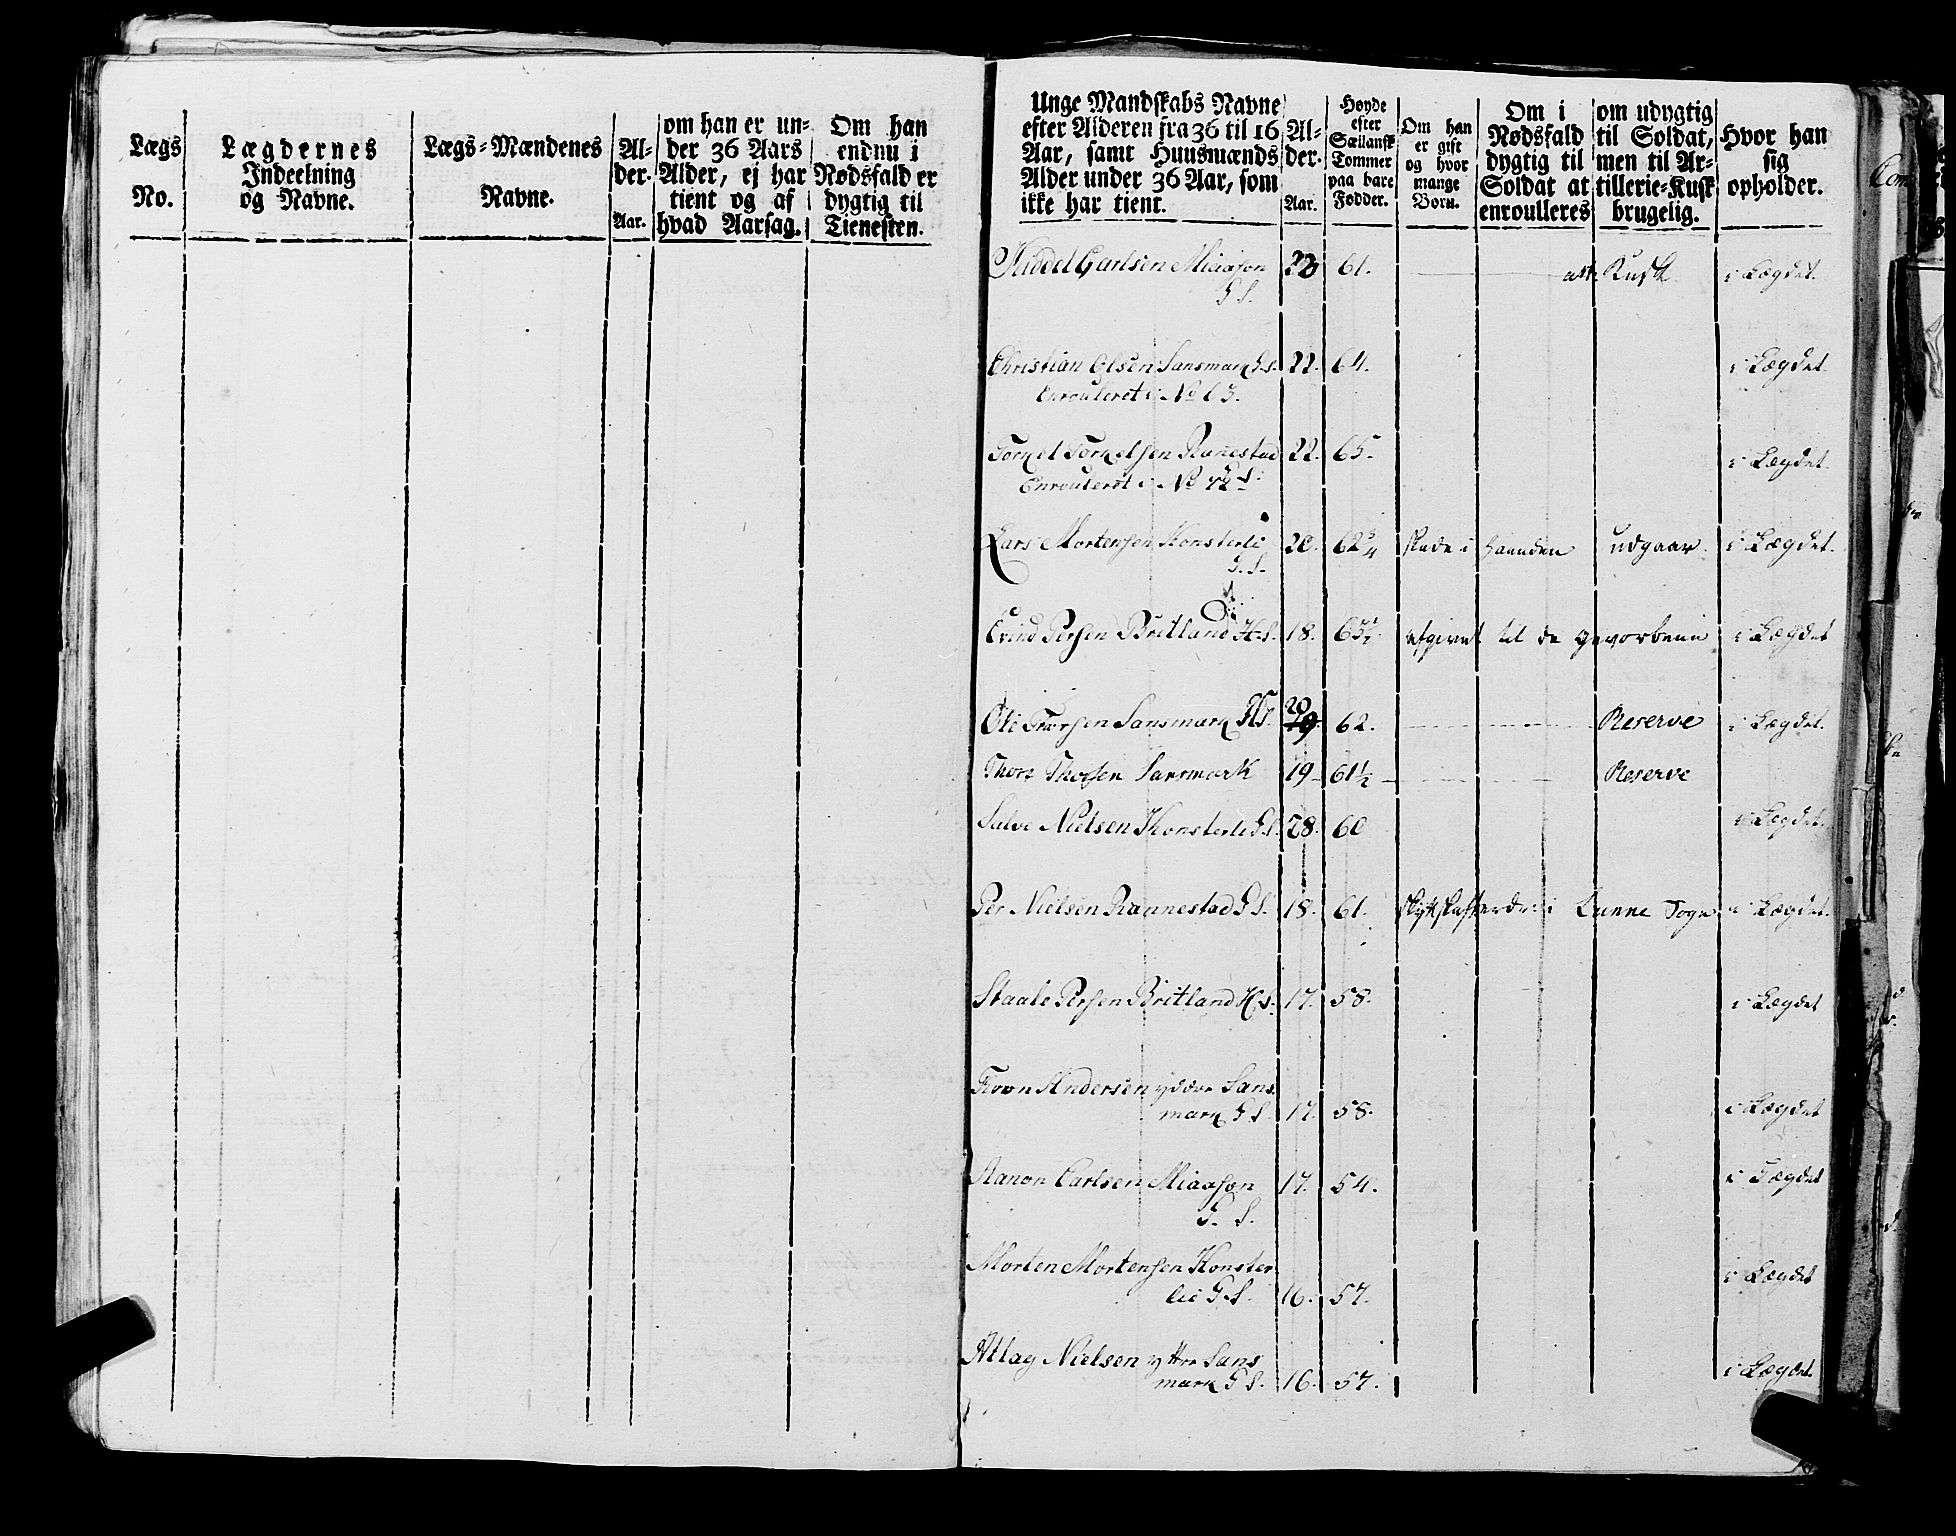 Lægs
No.
Lægdernes
Indeelning
og Navne.
Lægs-Mændenes
Navne.
Al-
der.
Aar.
om han er un-
der 36 Aars
Alder, ej har
tient og af
hvad Aarsag.
Om han
endnu i
Nødsfald er
dygtig til
Tienesten.
Unge Mandskabs Navne
efter Alderen fra 36 til 16
Aar, samt Huusmænds
Alder under 36 Aar, som
ikke har tient.
Al-
der.
Aar.
Høyde
efter
Sællansk
Tommer
paa bare
Fødder.
Om han
er gift
og hvor
mange
Børn.
Om i
Nødsfald
dygtig til
Soldat at
enroulleres
om udygtig
til Soldat,
men til Ar-
tillerie-Kusk
brugelig.
Hvor han
sig
opholder.
Kiddel Carlsen Miaason 61. Kusk i Lægdet.
G S.
Christian Olsen Sansmark G.S. 22. 64. i Lægdet.
Enrouleret i No
Torkel Torkelsen Rannestad 22. 65. i Lægdet.
Enrouleret i No
Lars Mortensen Konsterlie 20. 62 3/4 skade i Haanden udgaar. i Lægdet.
G.S.
Evind Persen Britland H.S. 18. afgivet til de gevorbene i Lægdet
20
Ole Sansmark 19. 62. Reserve i Lægdet.
Thore Thorsen Sansmark 19 61 1/2 Reserve
Salve Nielsen Konsterlie G.S. 28. 60 i Lægdet.
Per Nielsen Rannestad G S. 18. 61. i Lunne Sogn i Lægdet.
Staale Persen Britland H.S. 17. 58. i Lægdet
Andersen ydere Sans
mark G S. 17. 58. i Lægdet
Aanon Carlsen Miaason 17. 54. i Lægdet
G. S.
Morten Mortensen Konster i Lægdet
lie G.S. 16. 57.
Atlag Nielsen yttre Sans
mark G S. 16. 57. i Lægdet.